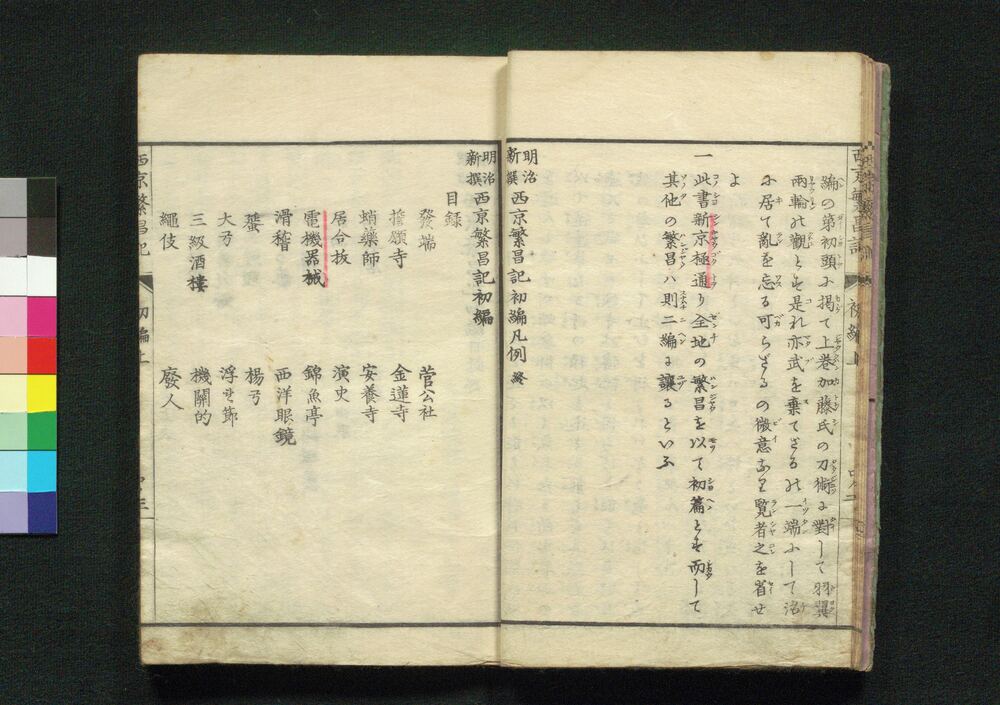 編の第初頭に掲て上巻加藤氏の刀術に對して羽翼
兩輪の觀とす是れ亦武を棄てざるの一端にして治
に居て亂を忘る可らざるの微意なり覧者之を省せ
よ
一 此書新京極通り全地の繁昌を以て初篇とす而して
其他の繁昌ハ則二編に讓るといふ
明治新撰 西京繁昌記初編凡例 終
明治新撰 西京繁昌記初編
目録
發端 菅公社
擔願寺 金蓮寺
蛸藥師 安養寺
居合抜 演史
電機器械 錦魚亭
滑稽 西洋眼鏡
蜑 楊弓
大弓 浮世節
三級酒樓 機關的
繩伎 廢人
西京繁昌記 初編上
西京繁昌記 初編上